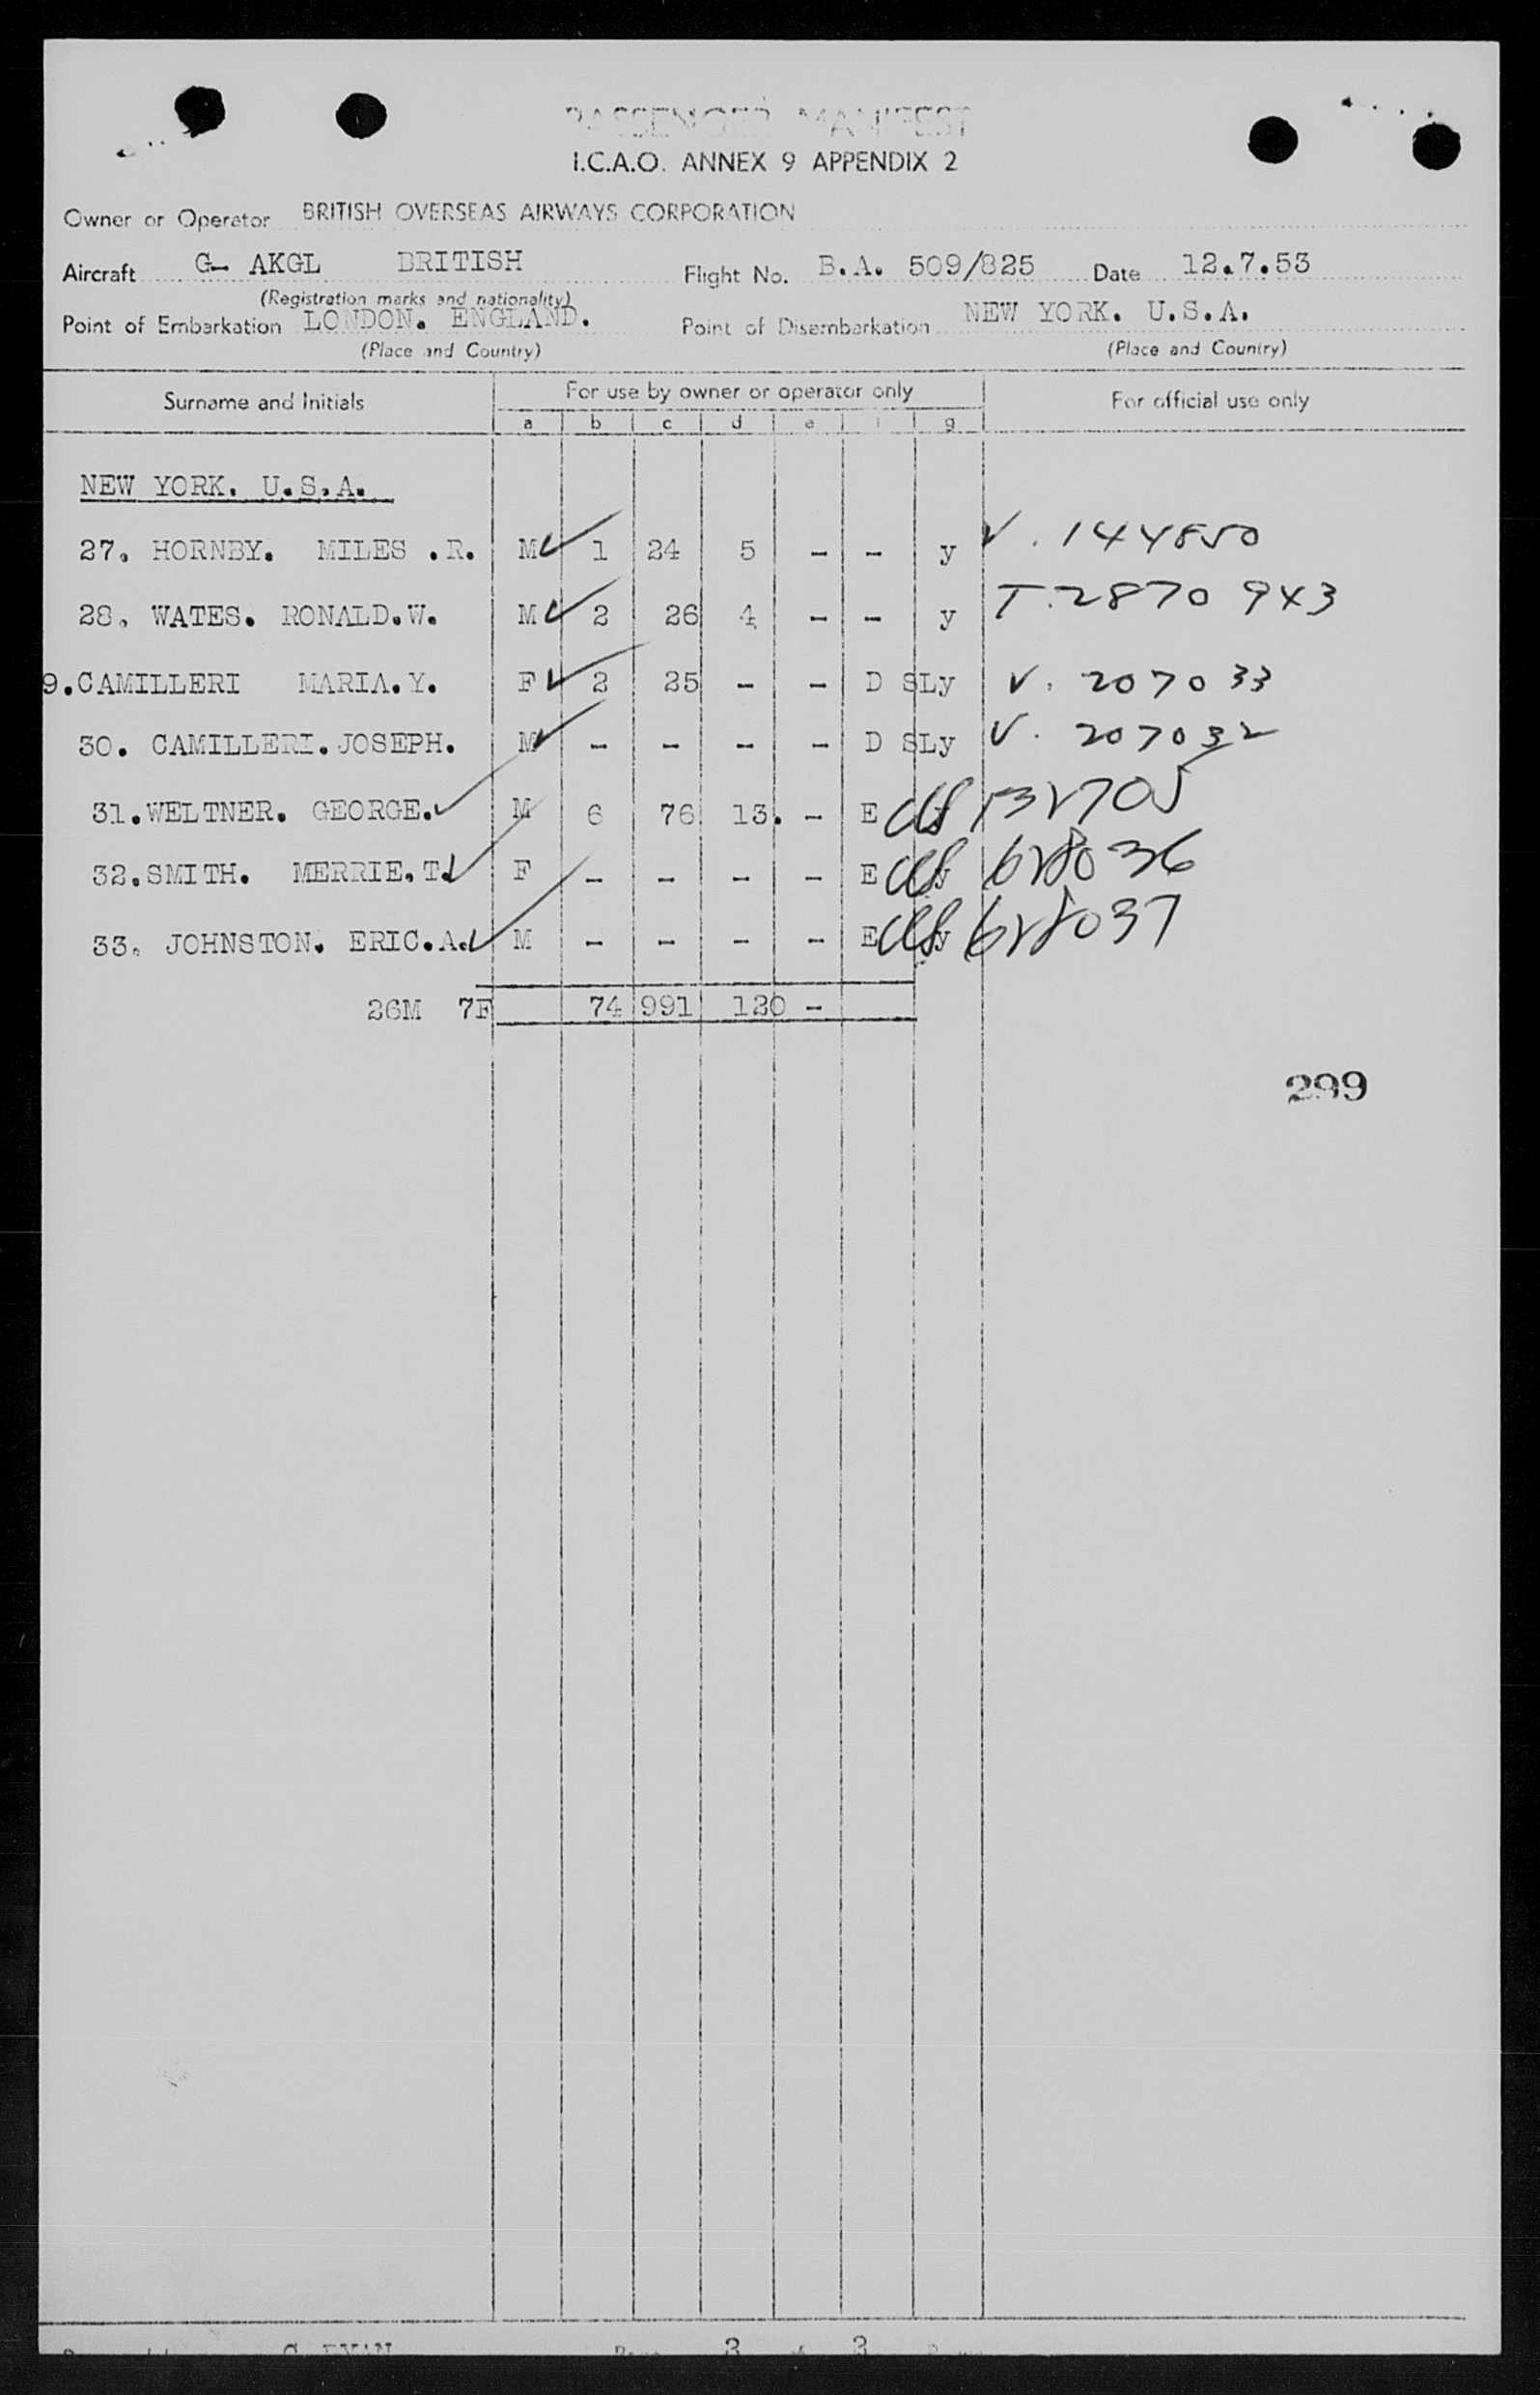 PASSENGER MANIFEST
I.C.A.O. ANNEX 9 APPENDIX 2
Owner or Operator BRITISH OVERSEAS AIRWAYS CORPORATION
Aircraft G- AKGL BRITISH Flight No. B.A. 509/825 Date 12.7.53
(Registration marks and nationality)
Point of Embarkation LONDON. ENGLAND. Point of Disembarkation NEW YORK. U.S.A.
(Place and Country) (Place and Country)
Surname and Initials For use by owner or operator only For official use only
a b c d e f g
NEW YORK. U.S.A.
27. HORNBY. MILES .R. M 1 24 5 - - y V. 144850
28. WATES. RONALD.W. M 2 26 4 - - y T.2870943
9.CAMILLERI MARIA.Y. F 2 25 - - D SLy V. 207033
30. CAMILLERI.JOSEPH. M - - - - D SLy V. 207032
31.WELTNER. GEORGE. M 6 76 13. - E 132705
32.SMITH. MERRIE.T. F - - - - E y 628036
33. JOHNSTON. ERIC.A. M - - - - E y 628037
26M 7F 74 991 120 -
299
3 3